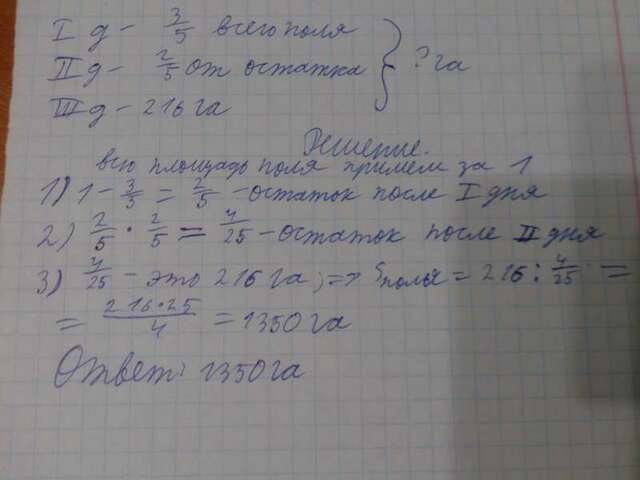 I д - 3/5 всего поля
II д - 2/5 от остатка } ? га
III д - 216 га
Решение.
всю площадь поля примем за 1
1) 1 - 3/5 = 2/5 - остаток после I дня
2) 2/5 · 2/5 = 4/25 - остаток после II дня
3) 4/25 - это 216 га, => S поля = 216 : 4/25 =
= 216·25/4 = 1350 га
Ответ: 1350 га